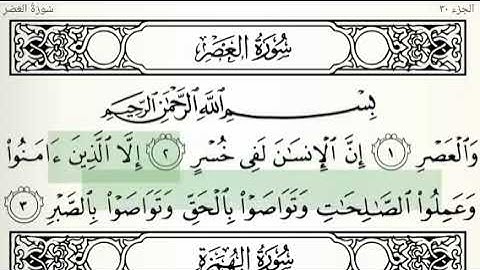 الجزء ٣٠
سورة العصر
سُورَةُ العَصْرِ
بِسْمِ ٱللَّهِ ٱلرَّحْمَٰنِ ٱلرَّحِيمِ
وَٱلْعَصْرِ ١ إِنَّ ٱلْإِنسَٰنَ لَفِى خُسْرٍ ٢ إِلَّا ٱلَّذِينَ ءَامَنُوا۟
وَعَمِلُوا۟ ٱلصَّٰلِحَٰتِ وَتَوَاصَوْا۟ بِٱلْحَقِّ وَتَوَاصَوْا۟ بِٱلصَّبْرِ ٣
سُورَةُ الهُمَزَةِ